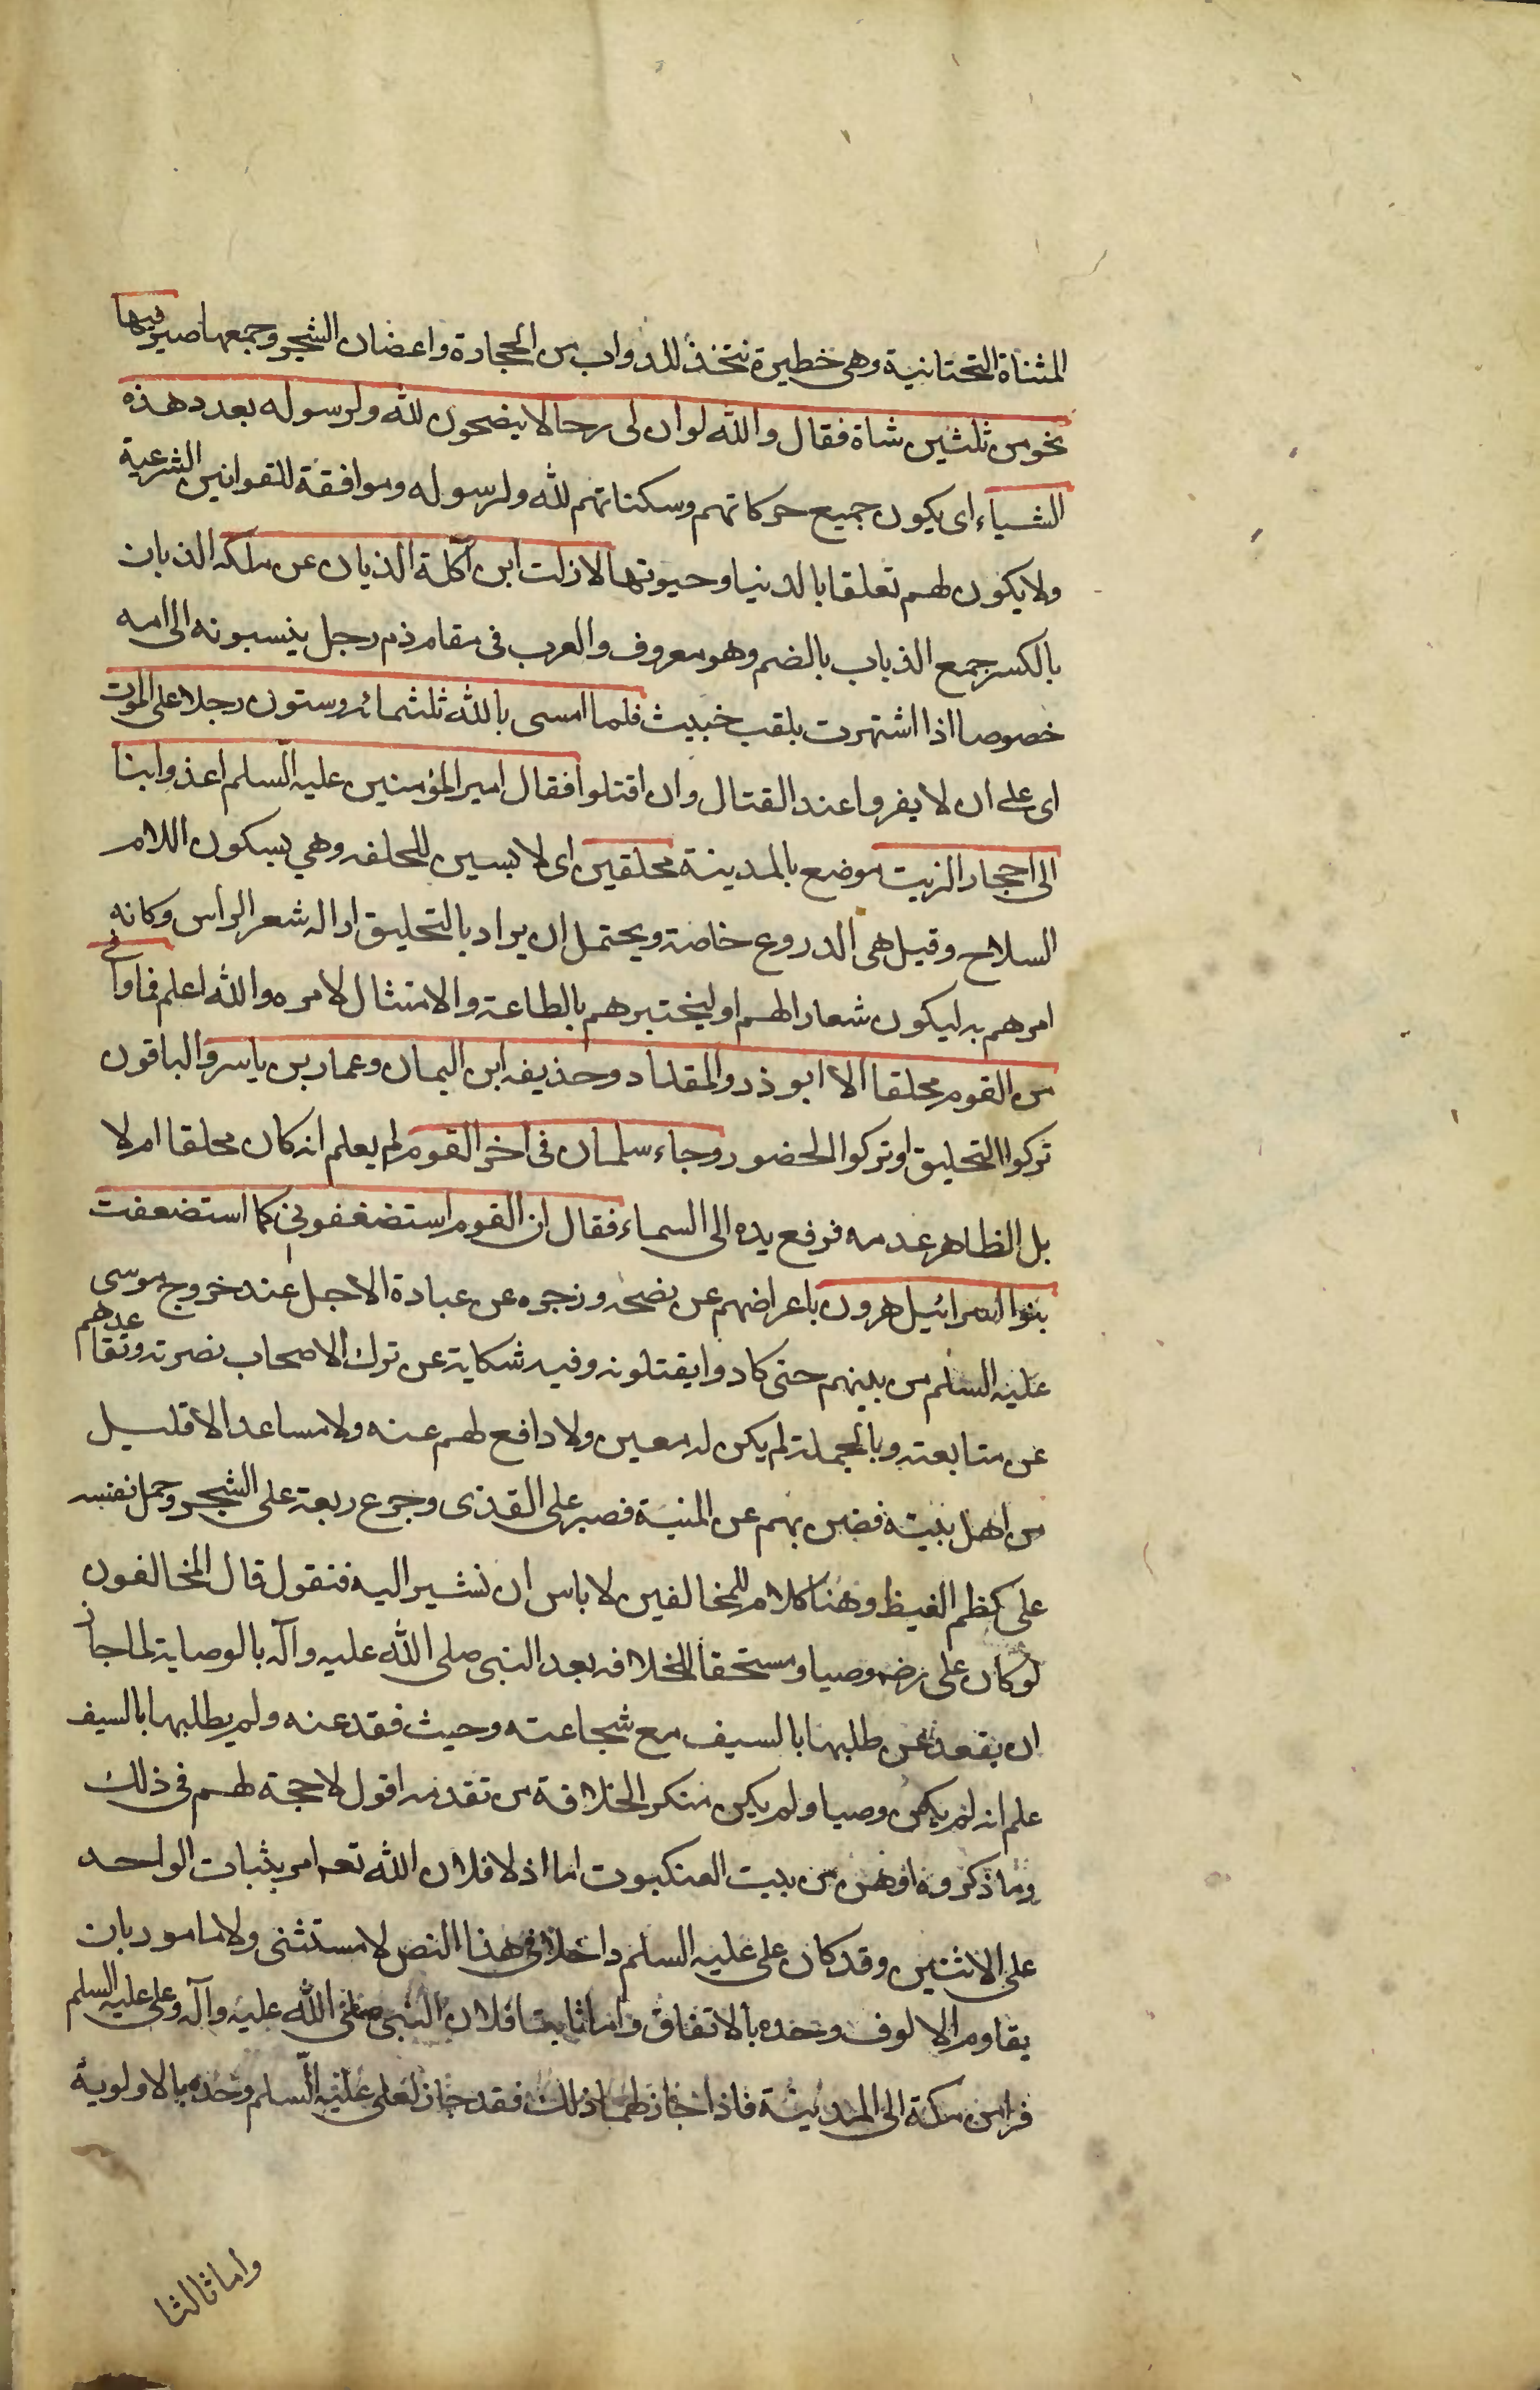 المثناة التحتانية وهى خطيرة نتخذ للدواب من الحجارة واعضان الشجر وجمعها صير فيها
نحو من ثلثين شاة فقال والله لو ان لى رجالا ينضحون لله ولرسوله بعدد هذه
الشياء اى يكون جميع حركاتهم وسكناتهم لله ولرسوله وموافقة للقوانين الشرعية
ولا يكون لهم تعلقا بالدنيا وحيوتها لازلت ابن آكلة الذبان عن ملكه الذبان
بالكسر جمع الذباب بالضم وهو معروف والعرب فى مقام ذم رجل ينسبونه الى امه
خصوصا اذا اشتهرت بلقب خبيث فلما امسى بالله ثلثمائه وستون رجلا على الموت
اى على ان لا يفروا عند القتال وان اقتلوا فقال امير المؤمنين عليه السلم اعذوا بنا
الى احجار الزيت موضع بالمدينة محلقين اى لابسين للحلقه وهي بسكون اللام
السلاح وقيل هى الدروع خاصة ويحتمل ان يراد بالتحليق ازاله شعر الراس وكانه
امرهم به ليكون شعارا لهم او ليختبرهم بالطاعة والامتثال لامره والله اعلم فما وافى
من القوم محلقا الا ابوذر والمقداد وحذيفه ابن اليمان وعمار بن ياسر والباقون
تركوا التحليق او تركوا الحضور وجاء سلمان فى اخر القوم لم يعلم انه كان محلقا ام لا
بل الظاهر عدمه فرفع يده الى السماء فقال ان القوم استضعفونى كما استضعفت
بنوا اسرائيل هرون باعراضهم عن نصحه وزجره عن عبادة الاجل عند خروج موسى
عليه السلم من بينهم حتى كادوا يقتلونه وفيه شكاية عن ترك الاصحاب نصرته وتقاعدهم
عن متابعته وبالجملة لم يكن له معين ولا دافع لهم عنه ولا مساعد الا قليل
من اهل بيته فضن بهم عن المنية فصبر على القذى وجرع ريقه على الشجر وحمل نفسه
على كظم الغيظ وهنا كلام للمخالفين لا باس ان نشير اليه فنقول قال المخالفون
لو كان على رضه وصيا ومستحقا للخلافه بعد النبى صلى الله عليه وآله بالوصاية لما جاز
ان يقعد عن طلبها بالسيف مع شجاعته وحيث فقد عنه ولم يطلبها بالسيف
علم انه لم يكن وصيا ولم يكن منكر الخلافة من تقدمه اقول لا حجة لهم فى ذلك
وما ذكروه اوهن من بيت العنكبوت اما اولا فلان الله تعه امر بثبات الواحد
على الاثنين وقد كان على عليه السلم داخلا فى هذا النص لا مستثنى ولا مامور بان
يقاوم الالوف وحده بالاتفاق واما ثانيا فلان النبى صلى الله عليه وآله وعلى عليه السلم
فرا من مكة الى المدينة فاذا جاز لهما ذلك فقد جاز لعلى عليه السلم وحده بالاولوية
واما ثالثا